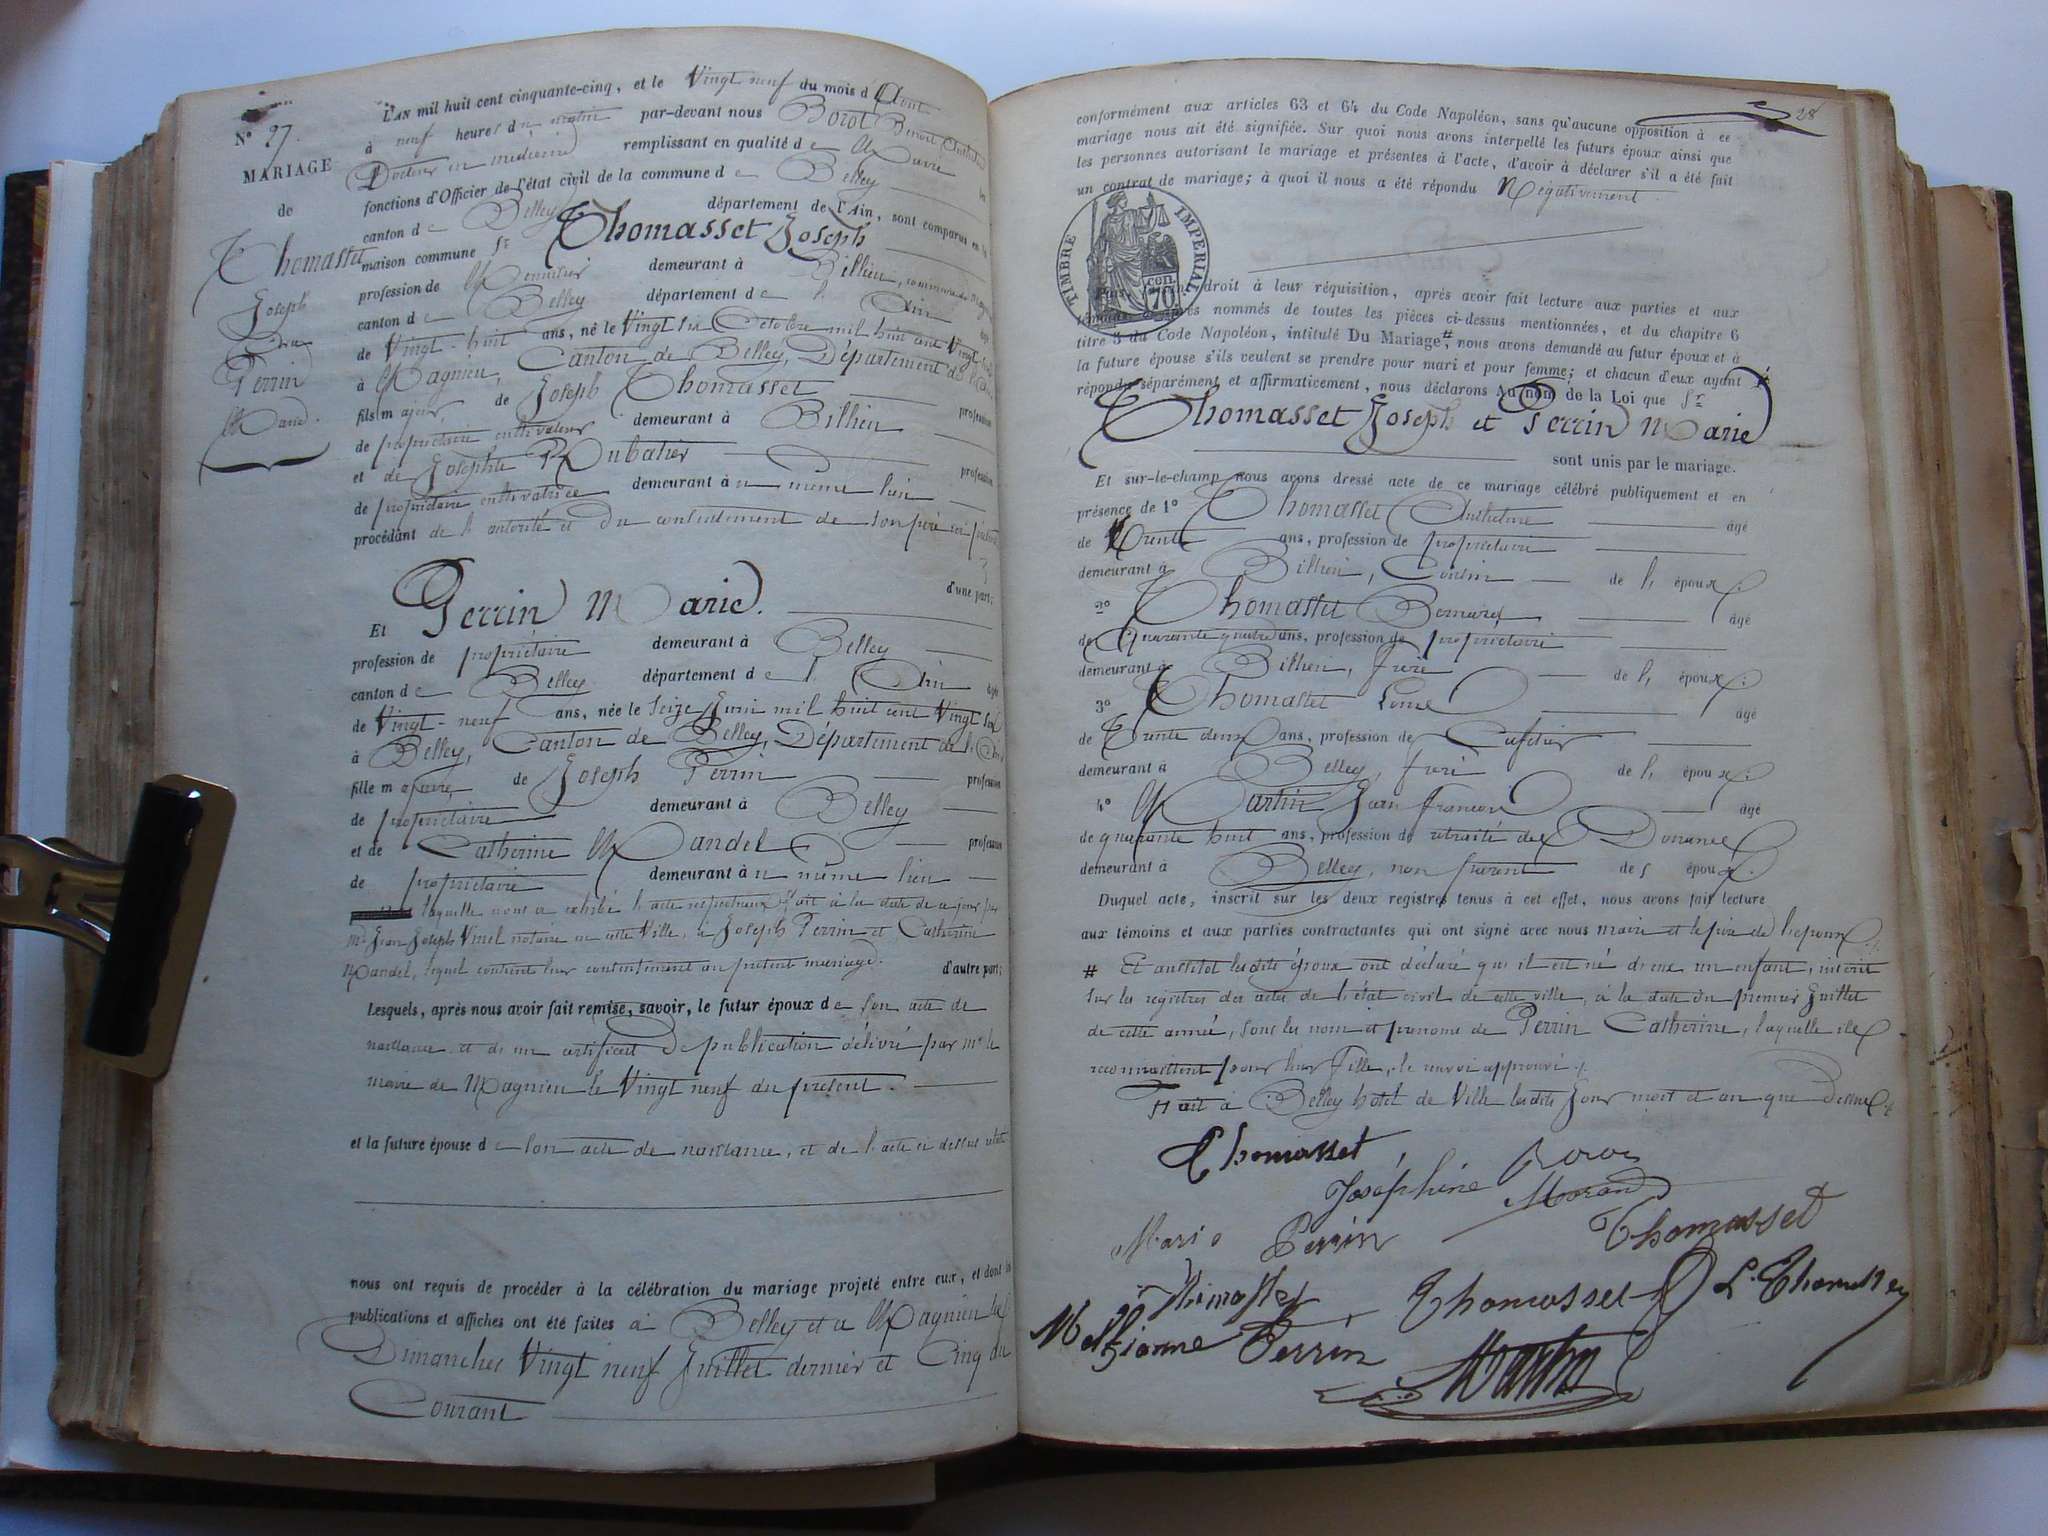 N° 27.
MARIAGE
de
Thomasset
Joseph
Perrin
L'AN mil huit cent cinquante-cinq, et le Vingt neuf du mois d'Aout
à neuf heures du matin par-devant nous Borot Benoit Anthelme
Docteur en médecine remplissant en qualité de Maire les
fonctions d'Officier de l'état civil de la commune de Belley
canton de Belley département de l'Ain, sont comparus en la
maison commune Sr Thomasset Joseph
profession de Menuisier demeurant à Billieu, commune de Magnieu
canton de Belley département de l'Ain âgé
de Vingt-huit ans, né le Vingt six Octobre mil huit cent Vingt
à Magnieu, Canton de Belley, Département de l'Ain
fils majeur de Joseph Thomasset profession
de propriétaire cultivateur demeurant à Billieu
et de Josephte Dubatier profession
de propriétaire cultivatrice demeurant à u même lieu
procédant de l'autorité et du consentement de son père ici présent
d'une part;
Et Perrin Marie.
profession de propriétaire demeurant à Belley
canton de Belley département de l'Ain âgée
de Vingt-neuf ans, née le Seize Juin mil huit cent Vingt six
à Belley, Canton de Belley, Département de l'Ain
fille majeure de Joseph Perrin profession
de propriétaire demeurant à Belley
et de Catherine Mandel profession
de propriétaire demeurant à u même lieu
laquelle nous a exhibé l'acte respectueux fait à la date de ce jour par
Me Jean Joseph Vinel notaire en cette Ville, à Joseph Perrin et Catherine
Mandel, lequel contient leur consentement au présent mariage. d'autre part;
Lesquels, après nous avoir fait remise, savoir, le futur époux de son acte de
naissance et d'un certificat de publication délivré par Mr le
maire de Magnieu le Vingt neuf du présent.
et la future épouse de son acte de naissance, et de l'acte ci dessus relaté
nous ont requis de procéder à la célébration du mariage projeté entre eux, et dont les
publications et affiches ont été faites à Belley et à Magnieu les
Dimanches Vingt neuf Juillet dernier et Cinq du
Courant
28
conformément aux articles 63 et 64 du Code Napoléon, sans qu'aucune opposition à ce
mariage nous ait été signifiée. Sur quoi nous avons interpellé les futurs époux ainsi que
les personnes autorisant le mariage et présentes à l'acte, d'avoir à déclarer s'il a été fait
un contrat de mariage; à quoi il nous a été répondu Négativement
TIMBRE IMPERIAL
70 cen.
droit à leur réquisition, après avoir fait lecture aux parties et aux
témoins nommés de toutes les pièces ci-dessus mentionnées, et du chapitre 6
titre 5 du Code Napoléon, intitulé Du Mariage, # nous avons demandé au futur époux et à
la future épouse s'ils veulent se prendre pour mari et pour femme; et chacun d'eux ayant
répondu séparément et affirmaticement, nous déclarons Au nom de la Loi que Sr
Thomasset Joseph et Perrin Marie
sont unis par le mariage.
Et sur-le-champ nous avons dressé acte de ce mariage célébré publiquement et en
présence de 1° Thomasset Anthelme âgé
de Trente ans, profession de propriétaire
demeurant à Billieu, Cousin de l'époux
2° Thomasset Bernard âgé
de Quarante quatre ans, profession de propriétaire
demeurant à Billieu, frère de l'époux
3° Thomasset Louis âgé
de Trente deux ans, profession de Cafetier
demeurant à Belley, frère de l'époux
4° Martin Jean françois âgé
de quarante huit ans, profession de retraité des Douanes
demeurant à Belley, non parent des époux
Duquel acte, inscrit sur les deux registres tenus à cet effet, nous avons fait lecture
aux témoins et aux parties contractantes qui ont signé avec nous maire et le père de l'époux
# Et aussitot lesdits époux ont déclaré qu'il est né d'eux un enfant, inscrit
sur les registres des actes de l'état civil de cette ville, à la date du premier Juillet
de cette année, sous les nom et prénoms de Perrin Catherine, laquelle ils
reconnaissent pour leur fille, le renvoi approuvé
Fait à Belley hotel de Ville lesdits Jour mois et an que dessus
Thomasset
Borot
Joséphine Morand
Marie Perrin
Thomasset
Thomasset
Thomasset
L. Thomasset
Perrin
Martin